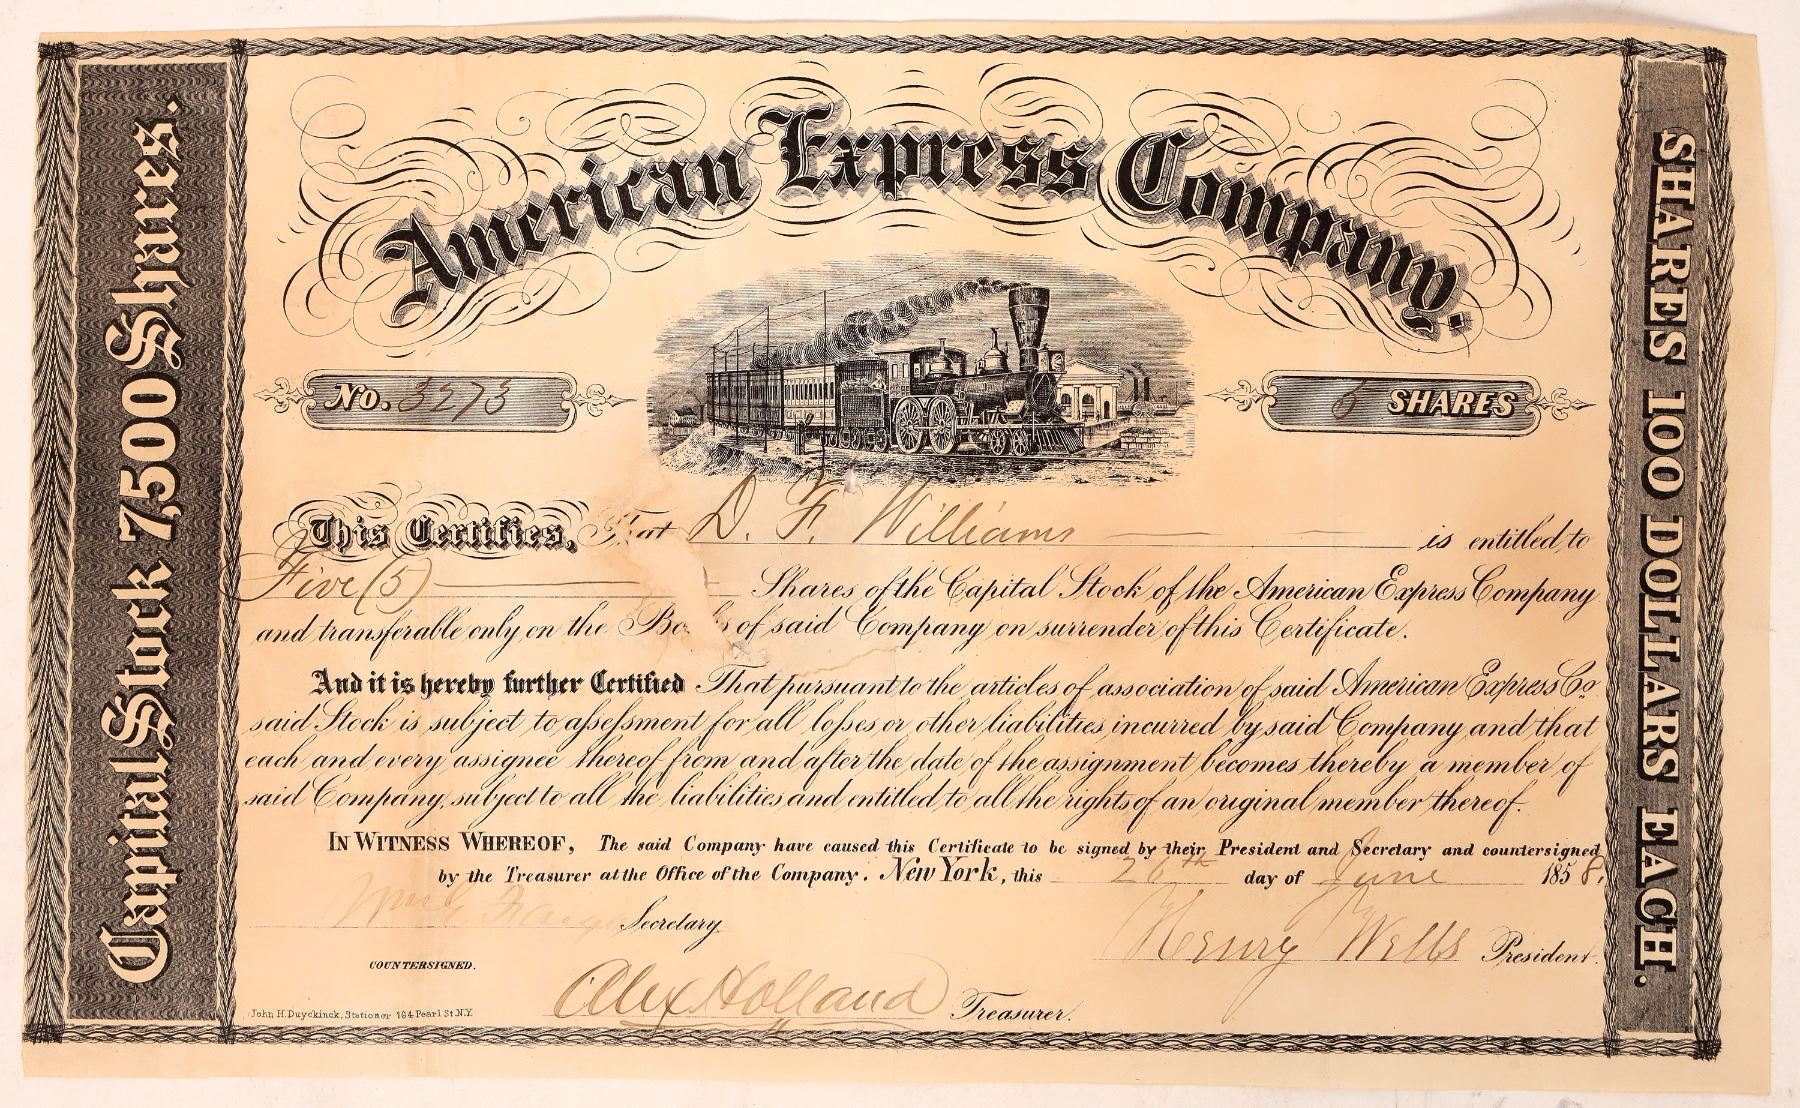 American Express Company.
Capital Stock 7,500 Shares.
SHARES 100 DOLLARS EACH.
No. 3273
5 SHARES
This Certifies, That D. F. Williams is entitled to
Five (5) Shares of the Capital Stock of the American Express Company
and transferable only on the of said Company on surrender of this Certificate.
And it is hereby further Certified That pursuant to the articles of association of said American Express Co.
said Stock is subject to assessment for all losses or other liabilities incurred by said Company and that
each and every assignee thereof from and after the date of the assignment becomes thereby a member of
said Company, subject to all the liabilities and entitled to all the rights of an original member thereof.
IN WITNESS WHEREOF, The said Company have caused this Certificate to be signed by their President and Secretary and countersigned
by the Treasurer at the Office of the Company. New York, this 26th day of June 1858.
Secretary
Henry Wells President.
COUNTERSIGNED.
Alex Holland Treasurer.
John H. Duyckinck, Stationer 164 Pearl St. N.Y.